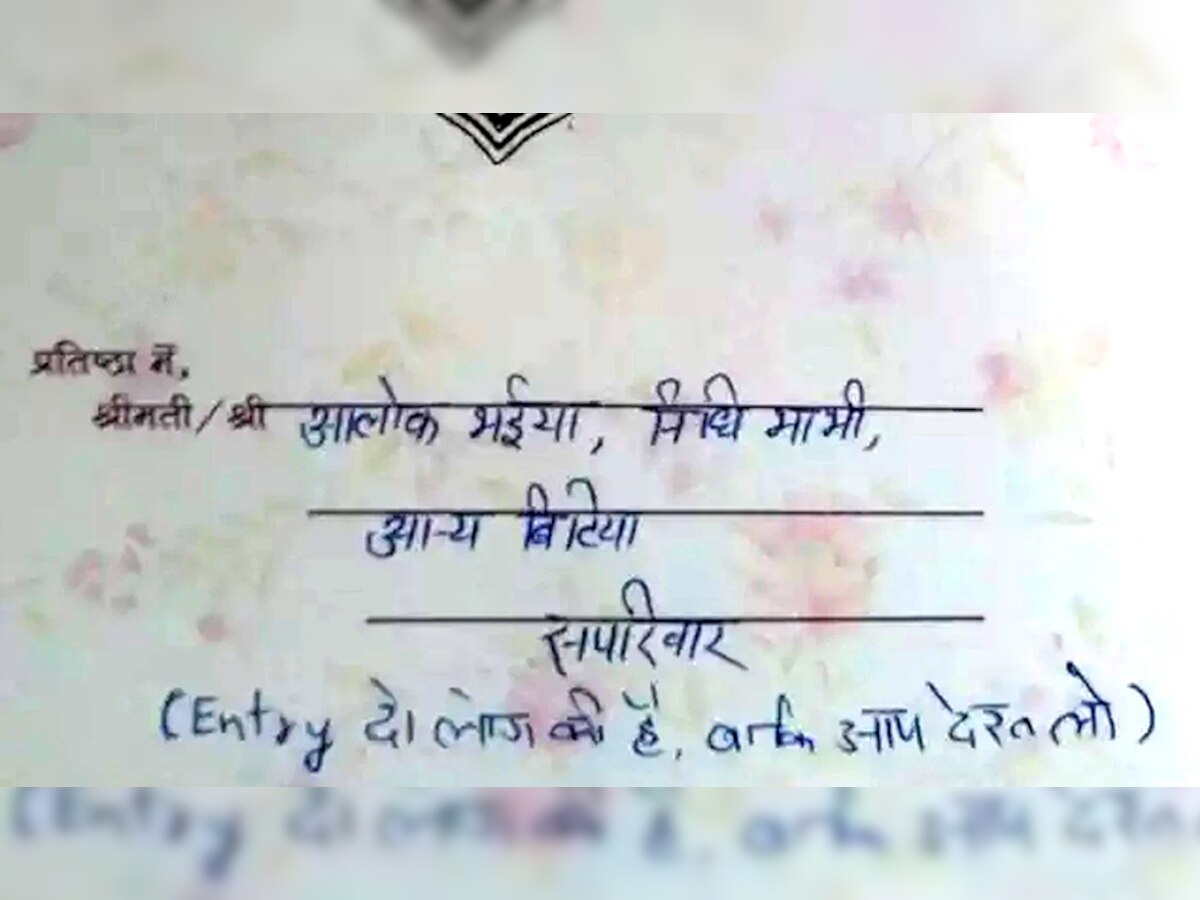 प्रतिष्ठा में,
श्रीमती / श्री आलोक भईया, निधि भाभी,
आन्य बिटिया
सपरिवार
(Entry दो लोग की है, बाकि आप देख लो)